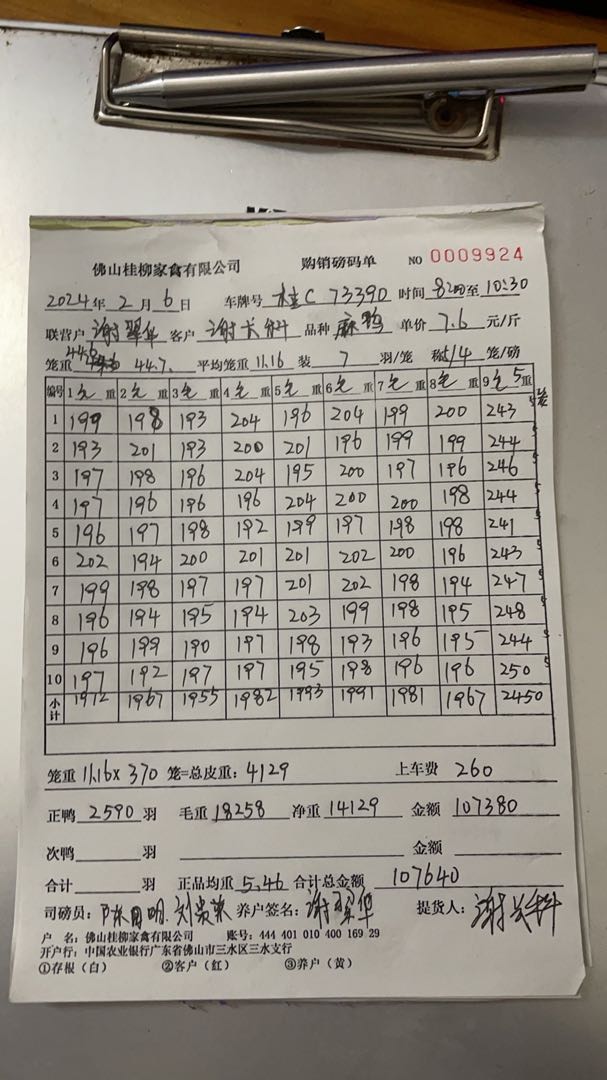 佛山桂柳家禽有限公司 购销磅码单 NO 0009924
2024年 2月 6日 车牌号 桂C 73390 时间 8:20至 10:30
联营户 谢翠华 客户 谢长科 品种 麻鸭 单价 7.6 元/斤
笼重 44.7 平均笼重 11.16 装 7 羽/笼 称 4 笼/磅
编号 1毛重 2毛重 3毛重 4毛重 5毛重 6毛重 7毛重 8毛重 9毛重 5笼
1 199 198 193 204 196 204 199 200 243 5
2 193 201 193 200 201 196 199 199 244 5
3 197 198 196 204 195 200 197 196 246 5
4 197 196 196 196 204 200 200 198 244 5
5 196 197 198 192 199 197 198 198 241 5
6 202 194 200 201 201 202 200 196 243 5
7 199 198 197 197 201 202 198 194 247 5
8 196 194 195 194 203 199 198 195 248 5
9 196 199 190 197 198 193 196 195 244 5
10 197 192 197 197 195 198 196 196 250 5
小计 1972 1967 1955 1982 1993 1991 1981 1967 2450
笼重 11.16× 370 笼=总皮重：4129 上车费 260
正鸭 2590 羽 毛重 18258 净重 14129 金额 107380
次鸭 羽 金额
合计 羽 正品均重 5.46 合计总金额 107640
司磅员： 养户签名：谢翠华 提货人：谢长科
户 名：佛山桂柳家禽有限公司 账号：444 401 010 400 169 29
开户行：中国农业银行广东省佛山市三水区三水支行
①存根（白） ②客户（红） ③养户（黄）